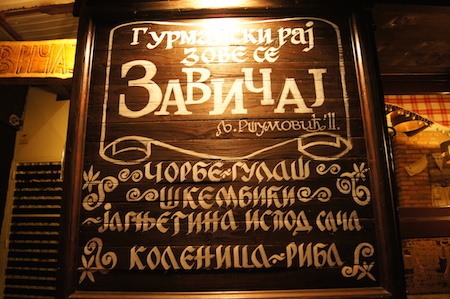 ГУРМАНСКИ РАЈ
ЗОВЕ СЕ
ЗАВИЧАЈ
Љ. Ршумовић '11.
ЧОРБЕ~ГУЛАШ
ШКЕМБИЋИ
~ЈАГЊЕТИНА ИСПОД САЧА
КОЛЕНИЦА~РИБА